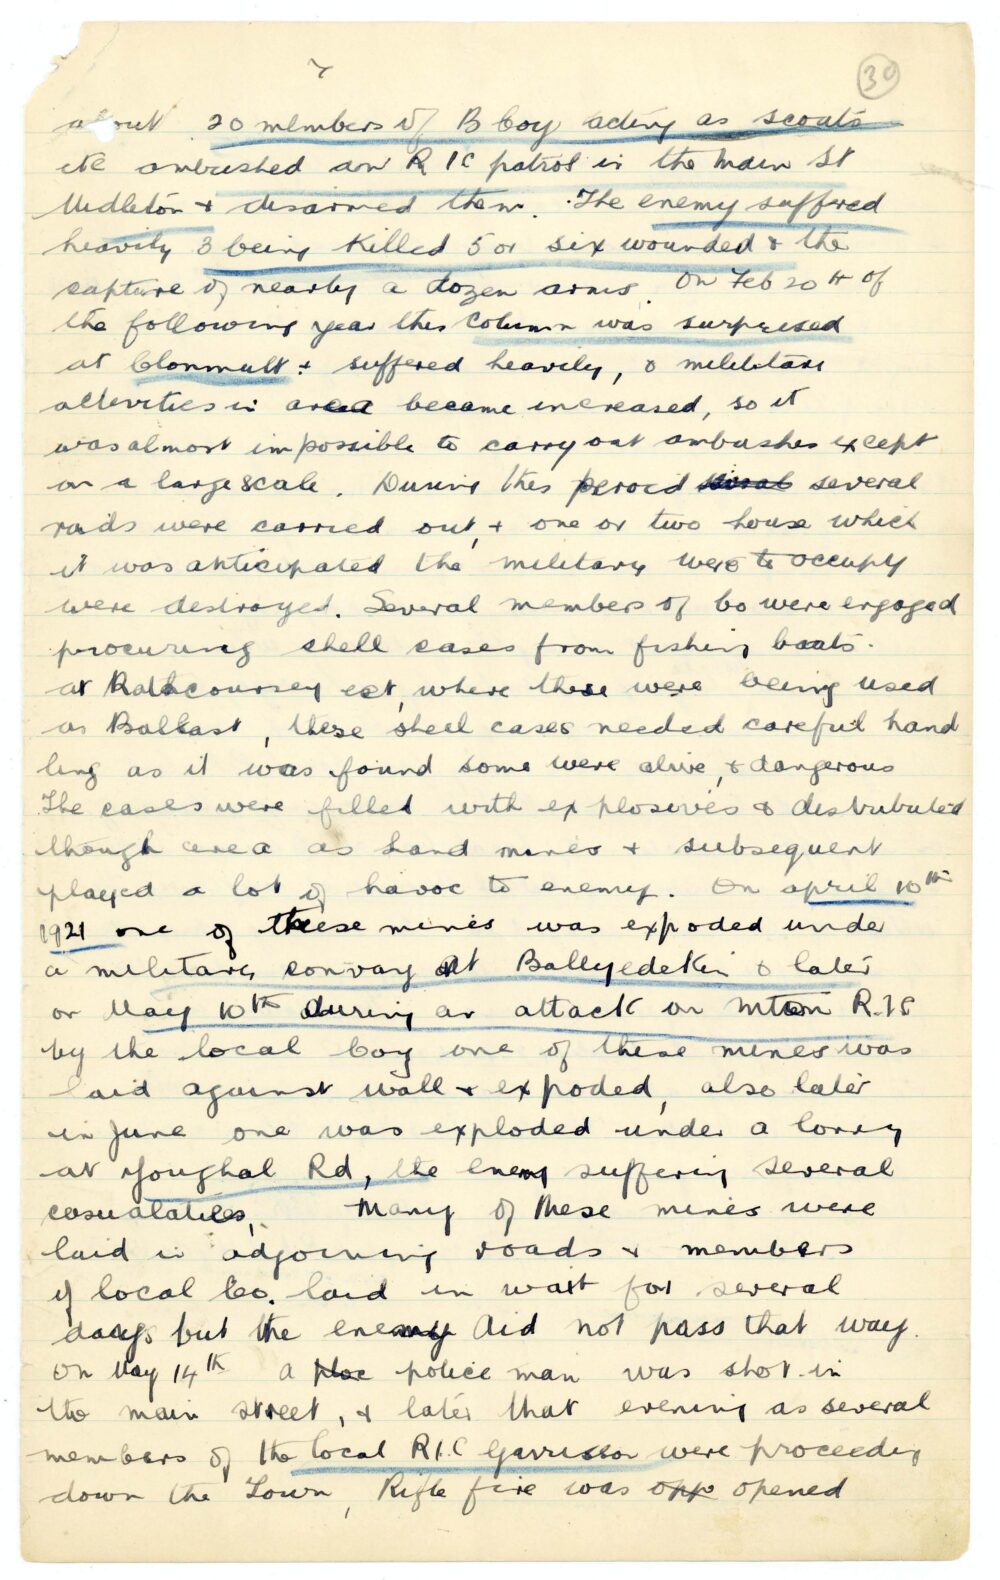 7
30
about 20 members of B Coy acting as scouts
etc ambushed an R I C patrol in the Main St
Midleton + disarmed them. The enemy suffered
heavily 3 being killed 5 or six wounded & the
capture of nearly a dozen arms. On Feb 20th of
the following year this column was surprised
at Clonmult + suffered heavily, & military
activities in area became increased, so it
was almost impossible to carry out ambushes except
on a large scale. During this peroid several
raids were carried out, + one or two house which
it was anticipated the military were to occupy
were destroyed. Several members of Co were engaged
procuring shell cases from fishing boats.
at Rathcoursey ect, where these were being used
as Ballast, these shell cases needed careful hand
ling as it was found some were alive, & dangerous
The cases were filled with explosives & distributed
though area as Land mines + subsequent
played a lot of havoc to enemy. On april 10th
1921 one of these mines was expoded under
a military convoy at Ballyedekin & later
on May 10th during an attack on Mton R.I.C
by the local Coy one of these mines was
laid against wall + expoded, also later
in June one was exploded under a lorry
at Youghal Rd, the enemy suffering several
casualaties, Many of these mines were
laid in adjoining roads + members
of local Co. laid in wait for several
days but the enemy did not pass that way.
On May 14th a police man was shot in
the main street, + later that evening as several
members of the local R.I.C Garrisson were proceeding
down the Town, Rifle fire was opp opened